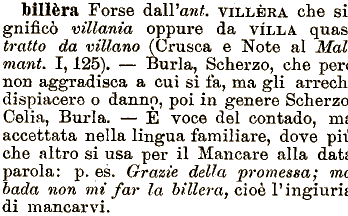 billèra Forse dall'ant. VILLÈRA che si-
gnificò villania oppure da VÍLLA quas
tratto da villano (Crusca e Note al Mal
mant. I, 125). — Burla, Scherzo, che però
non aggradisca a cui si fa, ma gli arrech
dispiacere o danno, poi in genere Scherzo
Celia, Burla. — È voce del contado, ma
accettata nella lingua familiare, dove più
che altro si usa per il Mancare alla data
parola: p. es. Grazie della promessa; ma
bada non mi far la billera, cioè l'ingiuria
di mancarvi.